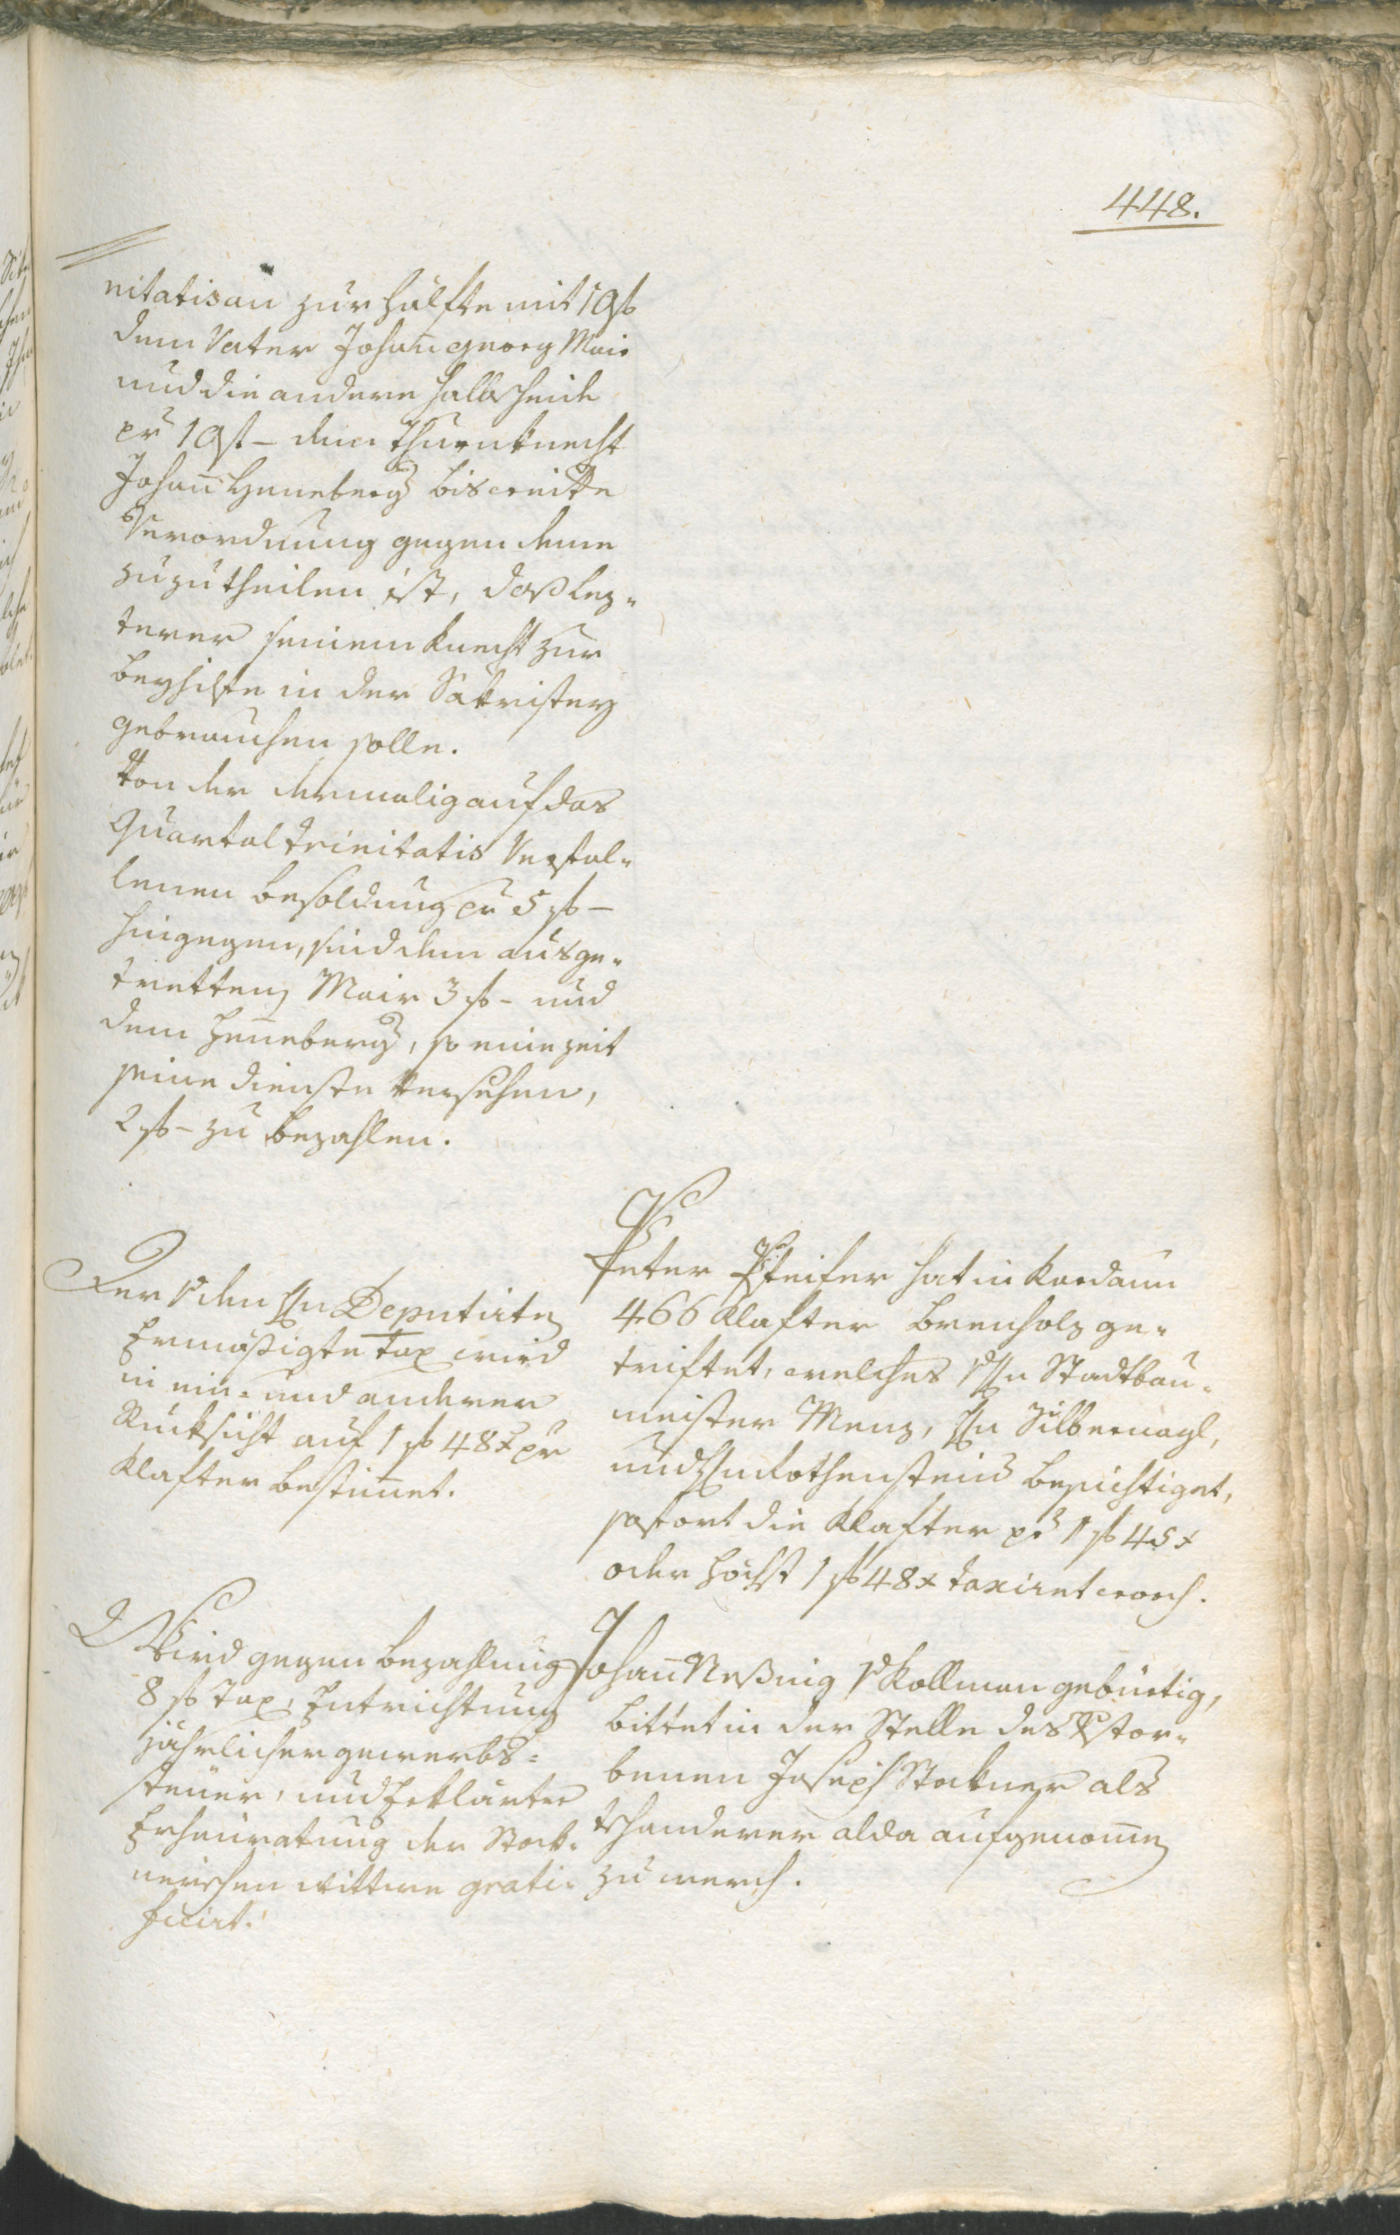 448.
nitatis an zur Hälfte mit 10 f
dem Vater Johan̅ georg Mair
und die andere halbscheide
pr 10 f – dem Thurnknecht
Johan̅ Henneberg bis weitte
Verordnung gegen deme
zuzutheilen ist, daß lez-
terer seinem Knecht zur
beyhilfe in der Sakristey
gebrauchen solle.
Von der dermalig auf das
Quartal trinitatis Verfal-
lenen besoldung pr 5 f –
hingegen, sind dem ausge-
tretteny Mair 3 f – und
dem Hen̅eberg, so eine zeit
seine dienste versehen,
2 f – zu bezahlen.
Der v den Hn Deputirten
Ermäßigte Tax wird
in ein- und anderer
Rücksicht auf 1 f 48 x pr
Klafter bestim̅et.
Peter Pfeifer hat in Kardaun
466 Klafter Brenholz ge-
triftet, welches v Hn Stadtbau-
meister Menz, Hn Silbernagl,
und Hn Rothenstein besichtiget,
sofort die Klafter pr 1 f 45 x
oder höchst 1 f 48 x taxiret word.
Wird gegen bezahlung
8 f Tax, Entrichtung
jährlicher gewerbs-
steuer, und Erklärter
Erheuratung der Stock-
nerischen Wittwe grati-
ficirt.
Johan̅ Neßnig v Kollman gebürtig,
bittet in der Stelle des Vstor-
benen Joseph Stockner als
tschanderer alda aufgenom̅en
zu werd.